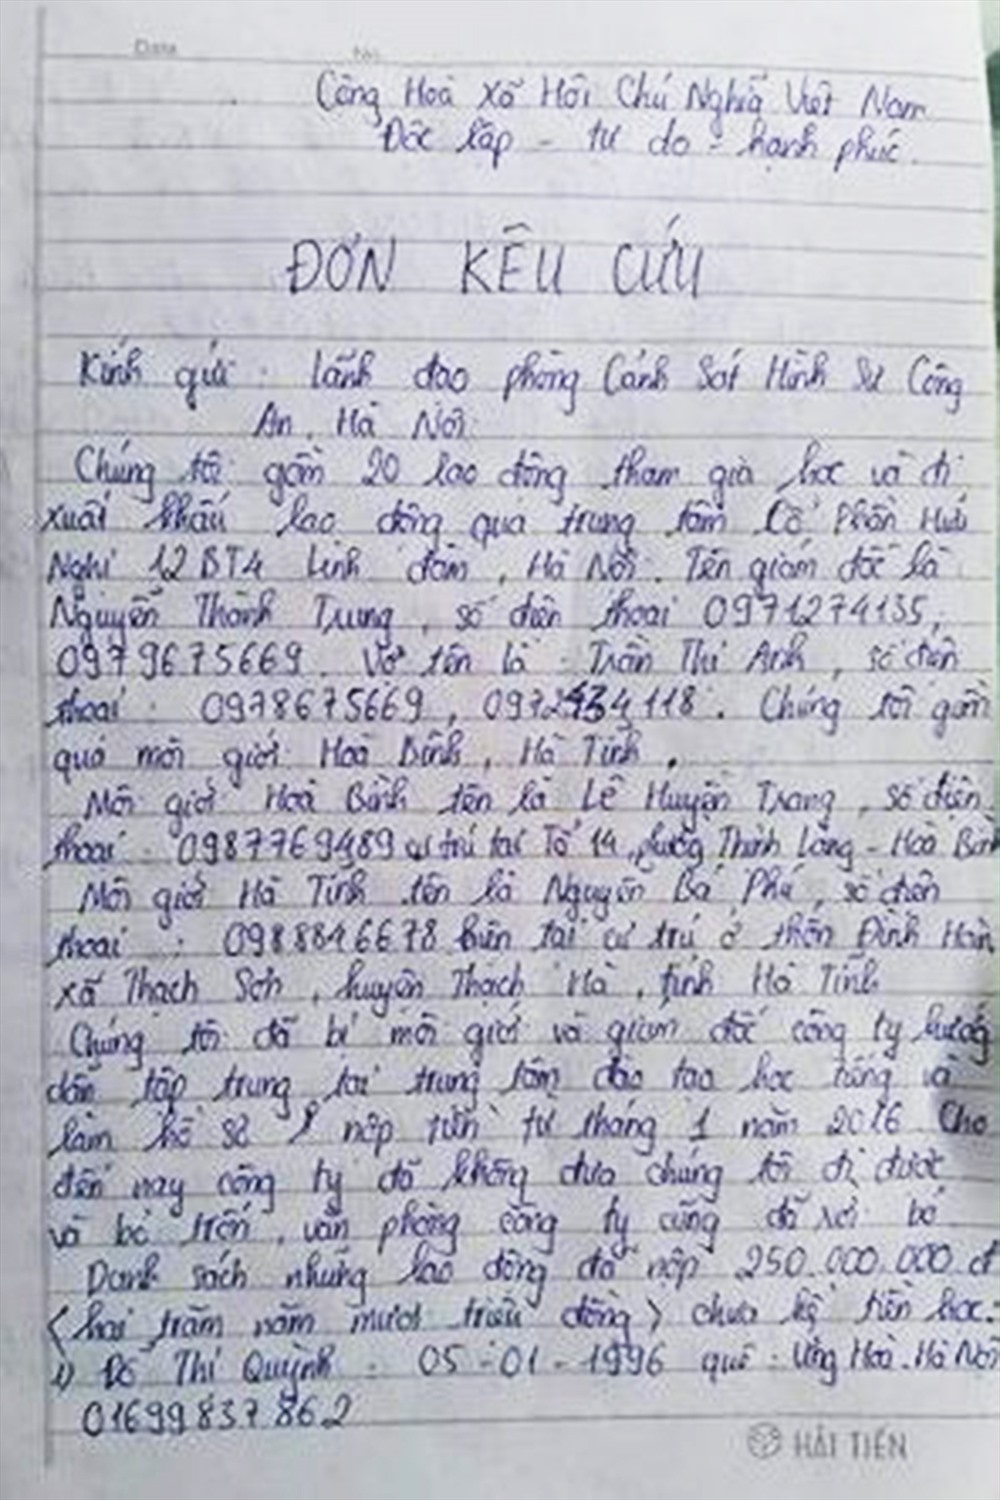 Date No.
Cộng Hoà Xã Hôi Chủ Nghĩa Việt Nam
Độc lập - tự do - hạnh phúc.
ĐƠN KÊU CỨU
Kính gửi : Lãnh đạo phòng Cảnh Sát Hình Sự Công
An, Hà Nội.
Chúng tôi gồm 20 lao động tham gia học và đi
xuất khẩu lao động qua trung tâm Cổ Phần Hữu
Nghị 12 BT4 Linh đàm, Hà Nội. Tên giám đốc là
Nguyễn Thành Trung, số điện thoại 0971274135,
0979675669. Vợ tên là Trần Thị Anh, số điện
thoại : 0978675669, 0972434118. Chúng tôi gồm
qua môi giới Hoà Bình, Hà Tĩnh.
Môi giới Hoà Bình tên là Lê Huyện Trang, số điện
thoại : 0987769489 cư trú tại Tổ 14, phường Thịnh Lang - Hoà Bình
Môi giới Hà Tĩnh tên là Nguyễn Bá Phú, số điện
thoại : 0988846678 hiện tại cư trú ở thôn Đình Hàn,
xã Thạch Sơn, huyện Thạch Hà, tỉnh Hà Tĩnh
Chúng tôi đã bị môi giới và giám đốc công ty hướng
dẫn tập trung tại trung tâm đào tạo học tiếng và
làm hồ sơ, nộp tiền từ tháng 1 năm 2016 Cho
đến nay công ty đã không đưa chúng tôi đi được
và bỏ trốn, văn phòng công ty cũng đã rời bỏ
Danh sách những lao động đã nộp 250.000.000 đ
(hai trăm năm mươi triệu đồng) chưa kể tiền học.
1) Đỗ Thị Quỳnh : 05-01-1996 quê : Ứng Hoà - Hà Nội
01699837862
HẢI TIẾN